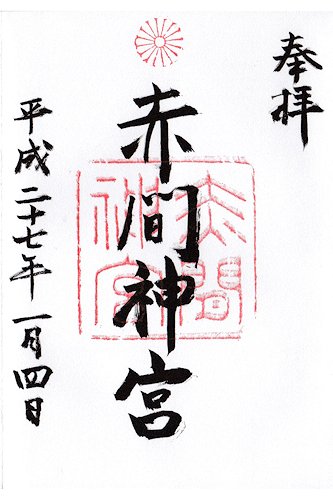 奉拝
赤間神宮
赤間神宮
平成二十七年一月四日